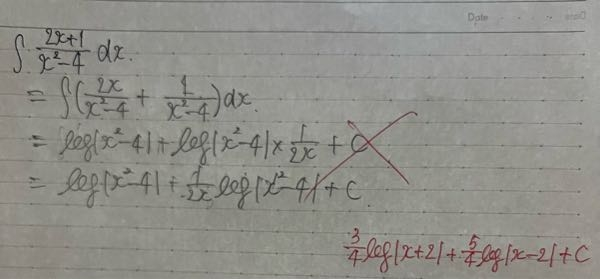 Date
∫ (2x+1)/(x²-4) dx.
= ∫(2x/(x²-4) + 1/(x²-4))dx.
= log|x²-4| + log|x²-4| × 1/2x + C
= log|x²-4| + 1/2x log|x²-4| + C
3/4 log|x+2| + 5/4 log|x-2| + C